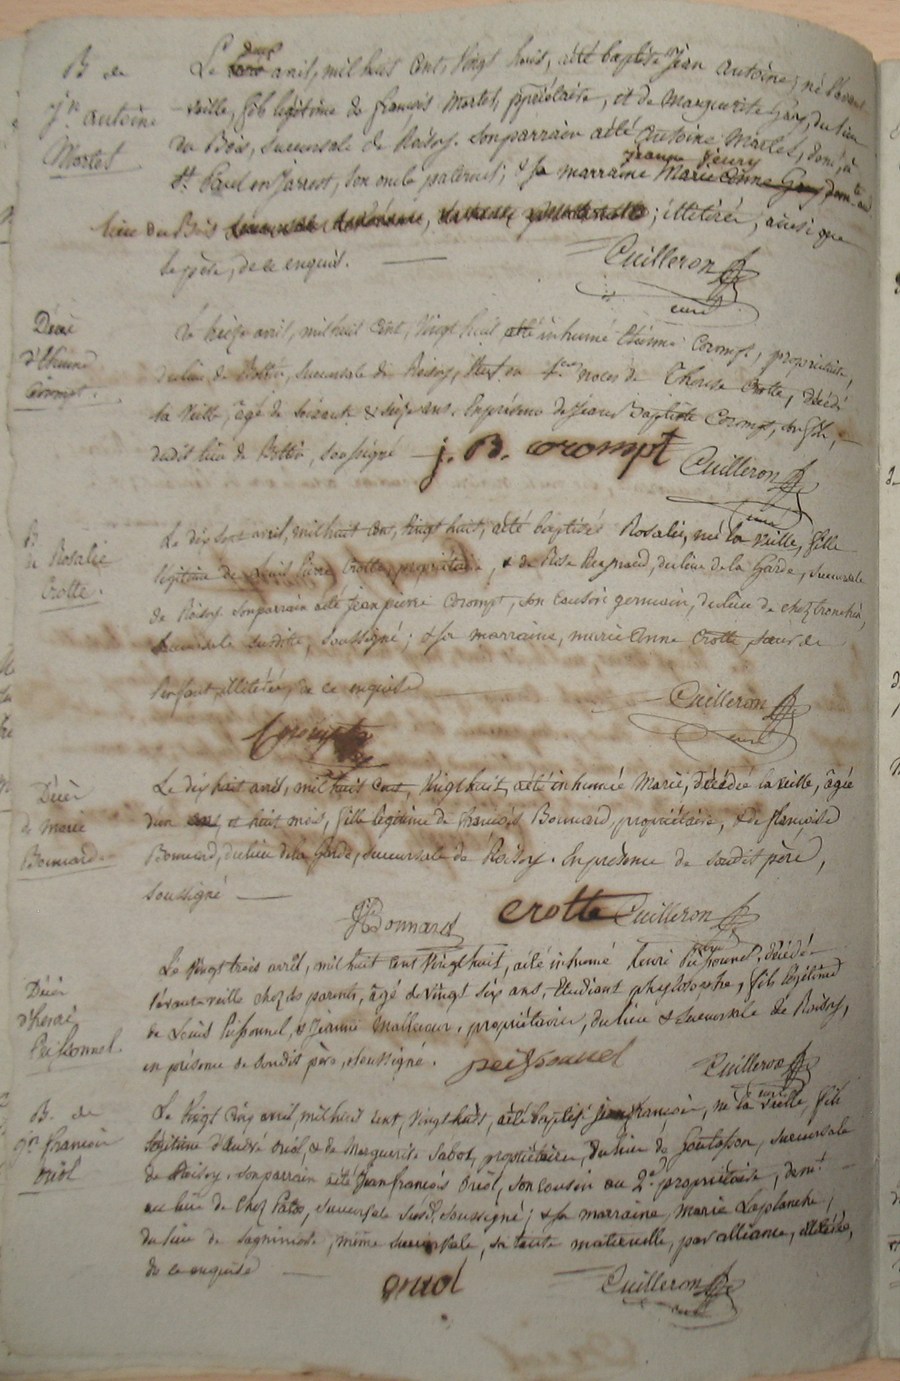 B de
jn antoine
Martel
Le deux avril, mil huit cent, vingt huit, a été baptisé Jean Antoine, né l'avant
-veille, fils légitime de françois Martel, propriétaire, et de Marguerite Gay, du lieu
du Bois, succursale de Roisey. Son parrain a été Antoine Martel, domt. à
St. Paul en Jarrest, son oncle paternel; & sa marraine Marie Anne Gay
jeanne fleury
lieu du Bois ; illitirée, ainsi que
le père, de ce enquis.
Cuilleron
curé
Décès
d'Etienne
Corompt.
Le treize avril, mil huit cent, vingt huit a été inhumé Etienne Corompt, propriétaire,
du lieu de Bottû, succursale de Roisey, en noces de Therese Crotte, décédé
la veille, âgé de soixante & seize ans. En présence de Jean Baptiste Corompt, son fils,
dudit lieu de Bottû, soussigné
j. B. corompt
Cuilleron
curé
B
de Rosalie
Crotte.
Le dix sept avril, mil huit cent, vingt huit, a été baptisée Rosalie, née la veille, fille
légitime de Pierre Crotte, propriétaire, & de Rose Reynaud, du lieu de la Garde, succursale
de Roisey. Son parrain a été Jean pierre Corompt, son cousin germain, du lieu de chez
succursale susdite, soussigné; & sa marraine, marie Anne Crotte, sœur de
l'enfant, illitérée, de ce enquise
Cuilleron
curé
Corompt
Décès
de marie
Bonnard.
Le dix huit avril, mil huit cent vingt huit, a été inhumée Marie, décédée la veille, âgée
d'un an, et huit mois, fille légitime de françois Bonnard, propriétaire, & de françoise
Bonnard, du lieu de la Garde, succursale de Roisey. En présence de soudit père,
soussigné
Bonnard
crotte
Cuilleron
curé
Décès
d'henri
Peissonnel
Le vingt trois avril, mil huit cent vingt huit, a été inhumé henri Peissonnel, décédé
l'avant-veille chez ses parents, âgé de vingt six ans, Etudiant phylosophe, fils légitime
de Louis Peissonnel, & Jeanne Mallecour, propriétaire, du lieu & succursale de Roisey,
en présence de soudit père, soussigné.
peissonnel
Cuilleron
curé
B. de
jn françois
oriol
Le vingt cinq avril, mil huit cent, vingt huit, a été baptisé jean françois, né la veille, fils
légitime d'André Oriol, & de Marguerite Sabot, propriétaire, du lieu de, succursale
de Roisey. Son parrain a été Jean françois Oriol, son cousin au 2d. propriétaire, demt.
au lieu de Chez, succursale susd. soussigné; & sa marraine, Marie Laplanche,
du lieu de, même succursale, sa tante maternelle, par alliance, illitérée,
de ce enquise
oriol
Cuilleron
curé